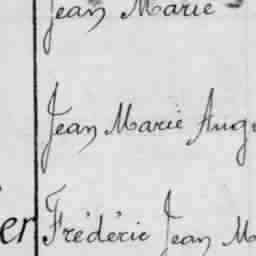 Jean Marie
Jean Marie Aug
er Frédéric Jean Ma